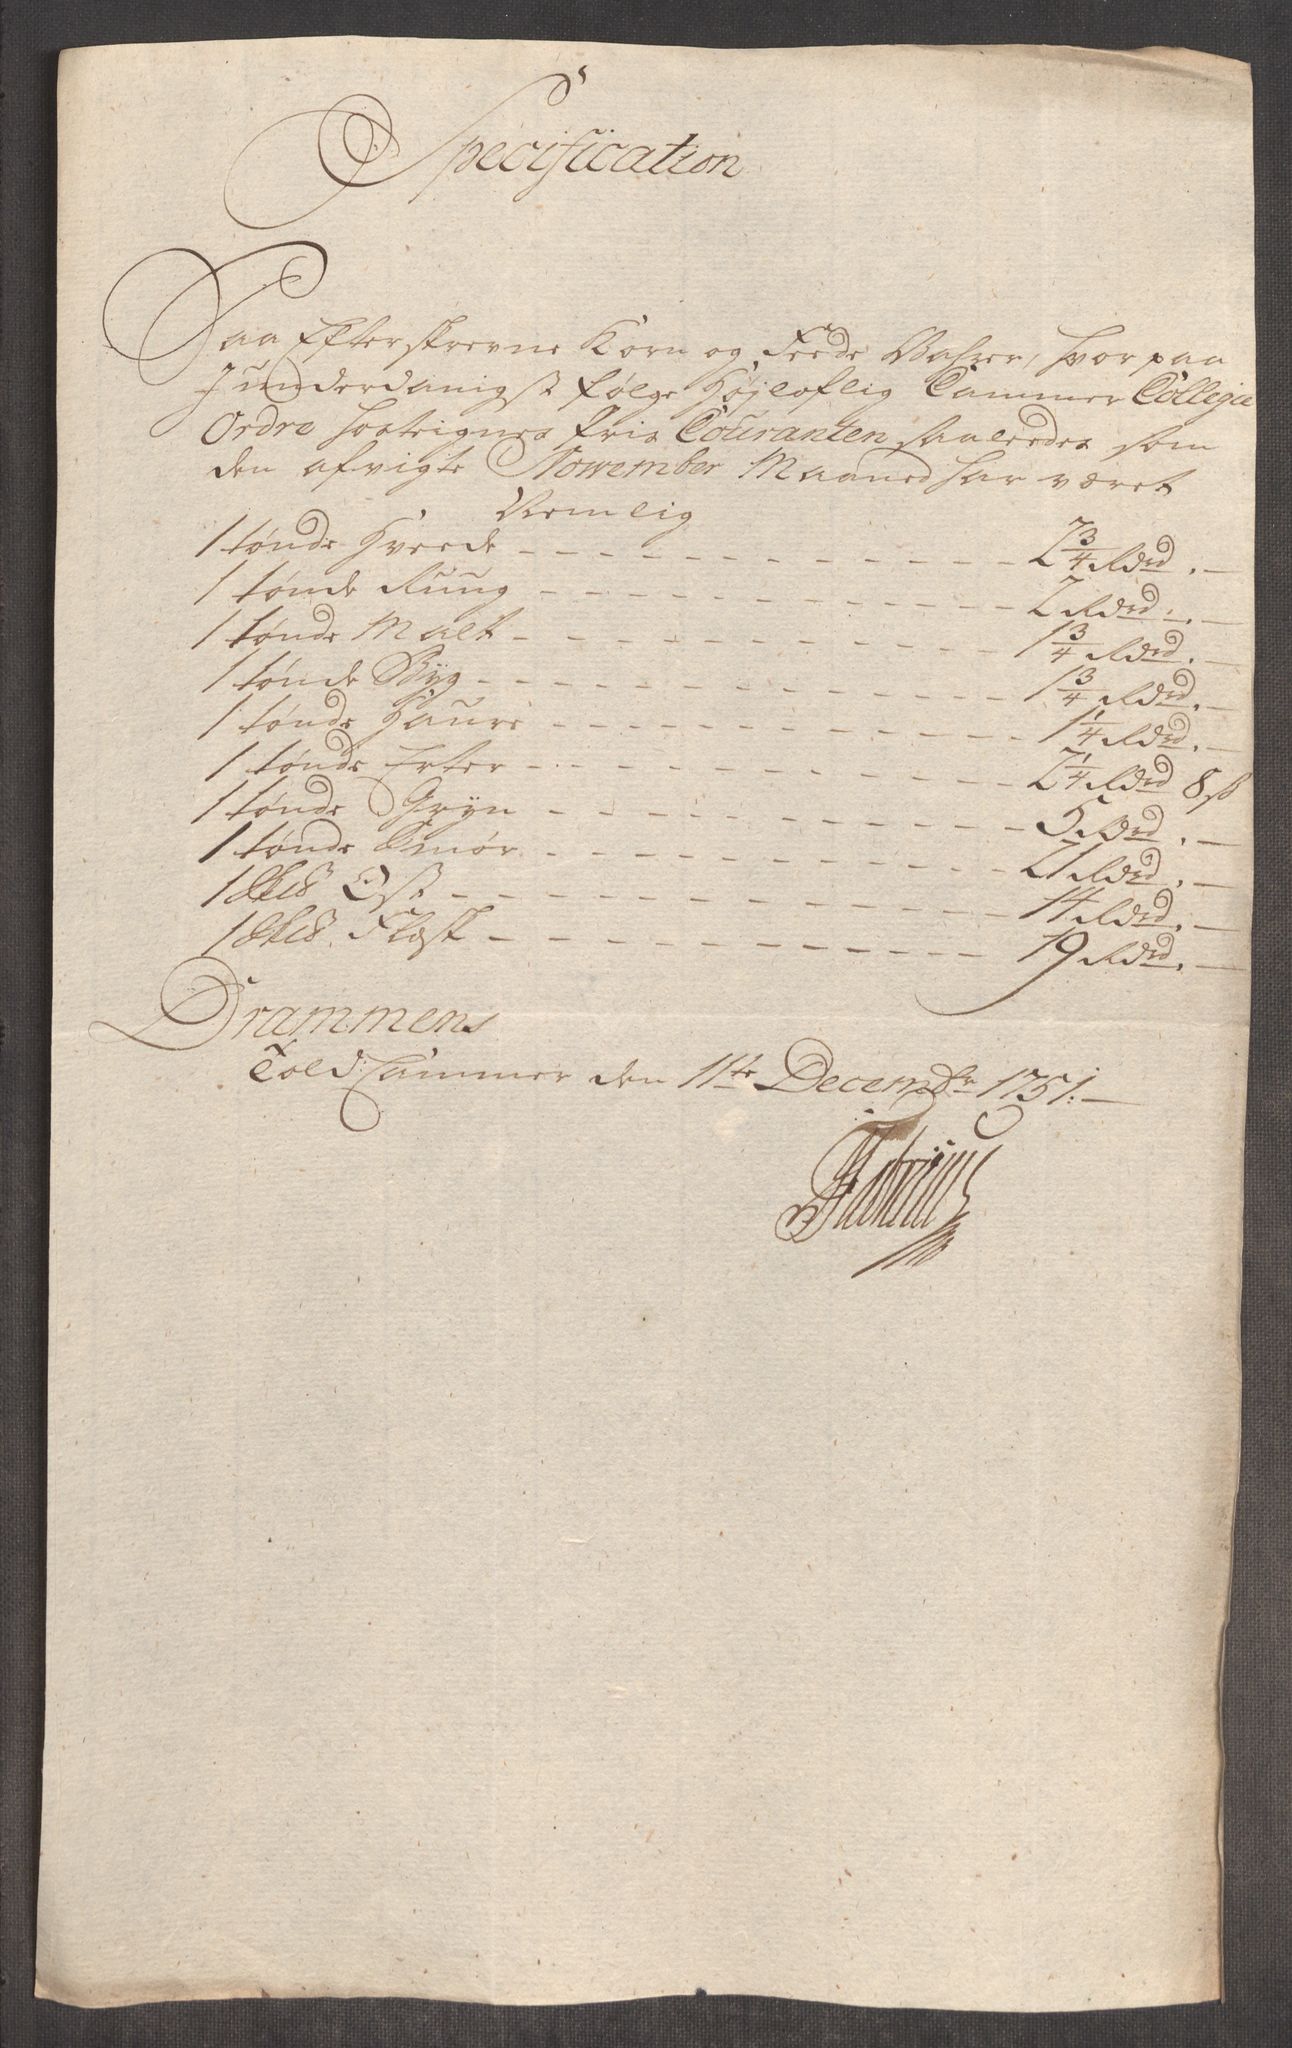 Specification
Paa Efterskrevne Korn og Feede Vahrer, hvorpaa
I underdanigst følge Høyloflig Cammer Collegie
Ordre hostegnes Pris Couranten saaleedes som
den afvigte November Maaned har været
Nemlig
1 tønde Hveede - - - 2 3/4 Rdrd. -
1 tønde Ruug - - - 2 Rdrd. -
1 tønde Malt - - - 1 3/4 Rdrd. -
1 tønde Byg - - - 1 3/4 Rdrd. -
1 tønde Haure - - - 1 1/4 Rdrd. -
1 tønde Erter - - - 2 1/4 Rdrd 8 ß
1 tønde Gryn - - - 5 Rdrd. -
1 tønde Smør - - - 21 Rdrd. -
1 Sk℔ Ost - - - 14 Rdrd. -
1 Sk℔. Flæsk - - - 19 Rdrd. -
Drammens
Told Cammer den 11te Decembr 1751. -